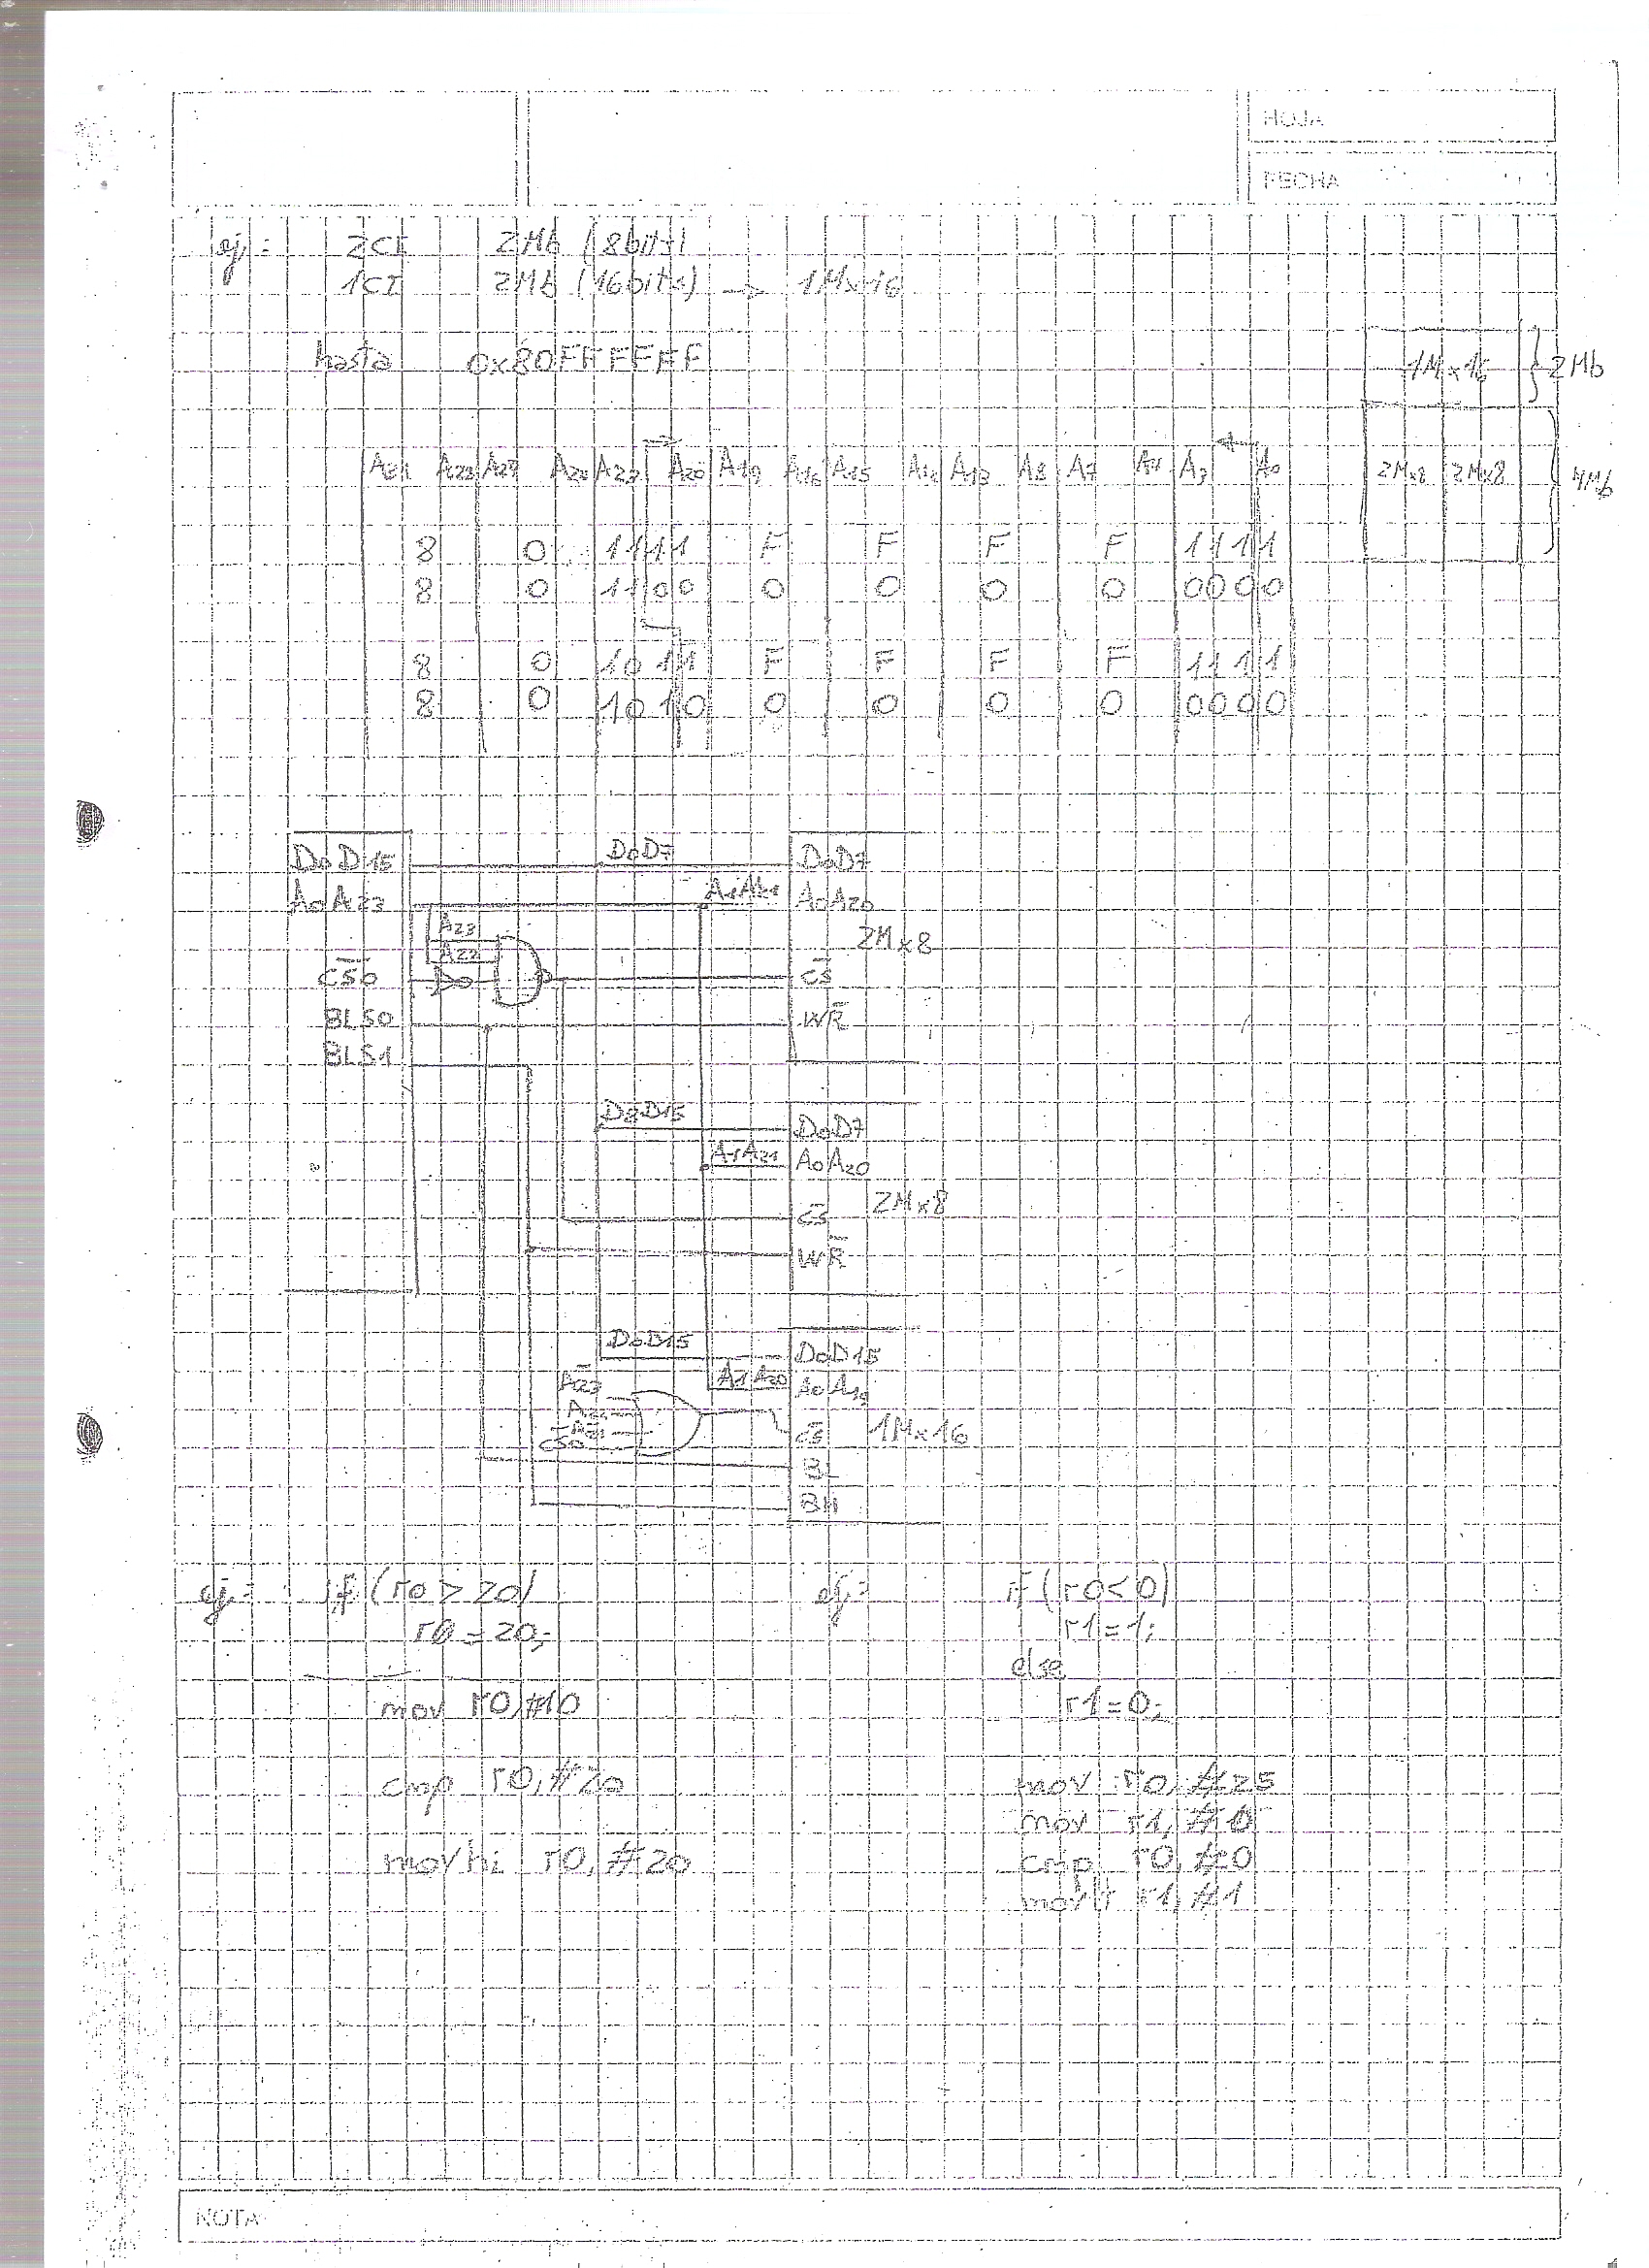 HOJA
FECHA
ej: 2CI 2Mb (8bits)
1CI 2Mb (16bits) → 1Mx16
hasta 0x80FFFFFF
1Mx16 } 2Mb
2Mx8 2Mx8 } 4Mb
A31 A28 A27 A24 A23 A20 A19 A16 A15 A12 A8 A7 A4 A3 A0
8 0 1111 F F F F 1111
8 0 1100 0 0 0 0 0000
8 0 1011 F F F F 1111
8 0 1010 0 0 0 0 0000
D0D15 D0D7 D0D7
A0A23 A1A21 A0A20
A23
A22
2Mx8
CS0 CS
BLS0 WR
BLS1
D8D15 D0D7
A1A21 A0A20
CS 2Mx8
WR
D0D15 D0D15
A23 A1A20 A0A19
A21
CS0 CS 1Mx16
BL
BH
ej: if (r0 > 20)
r0 = 20;
mov r0, #10
cmp r0, #20
movhi r0, #20
ej: if (r0 < 0)
r1 = 1;
else
r1 = 0;
mov r0, #25
mov r1, #0
cmp r0, #0
movlt r1, #1
NOTA